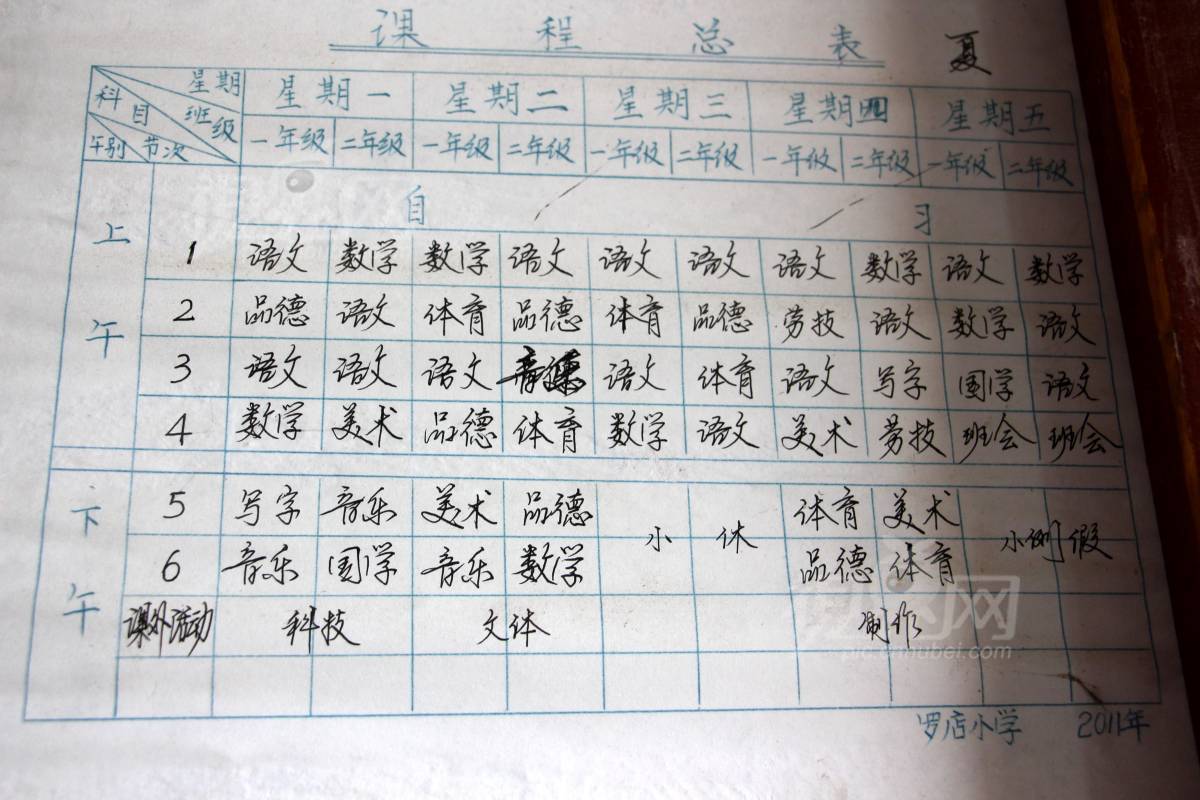 课程总表 夏
星期 科目 班级 午别 节次 星期一 星期二 星期三 星期四 星期五
一年级 二年级 一年级 二年级 一年级 二年级 一年级 二年级 一年级 二年级
自习
上午
1 语文 数学 数学 语文 语文 语文 语文 数学 语文 数学
2 品德 语文 体育 品德 体育 品德 劳技 语文 数学 语文
3 语文 语文 语文 音乐 语文 体育 语文 写字 国学 语文
4 数学 美术 品德 体育 数学 语文 美术 劳技 班会 班会
下午
5 写字 音乐 美术 品德 小休 体育 美术 小例假
6 音乐 国学 音乐 数学 品德 体育
课外活动 科技 文体 制作
罗店小学 2011年